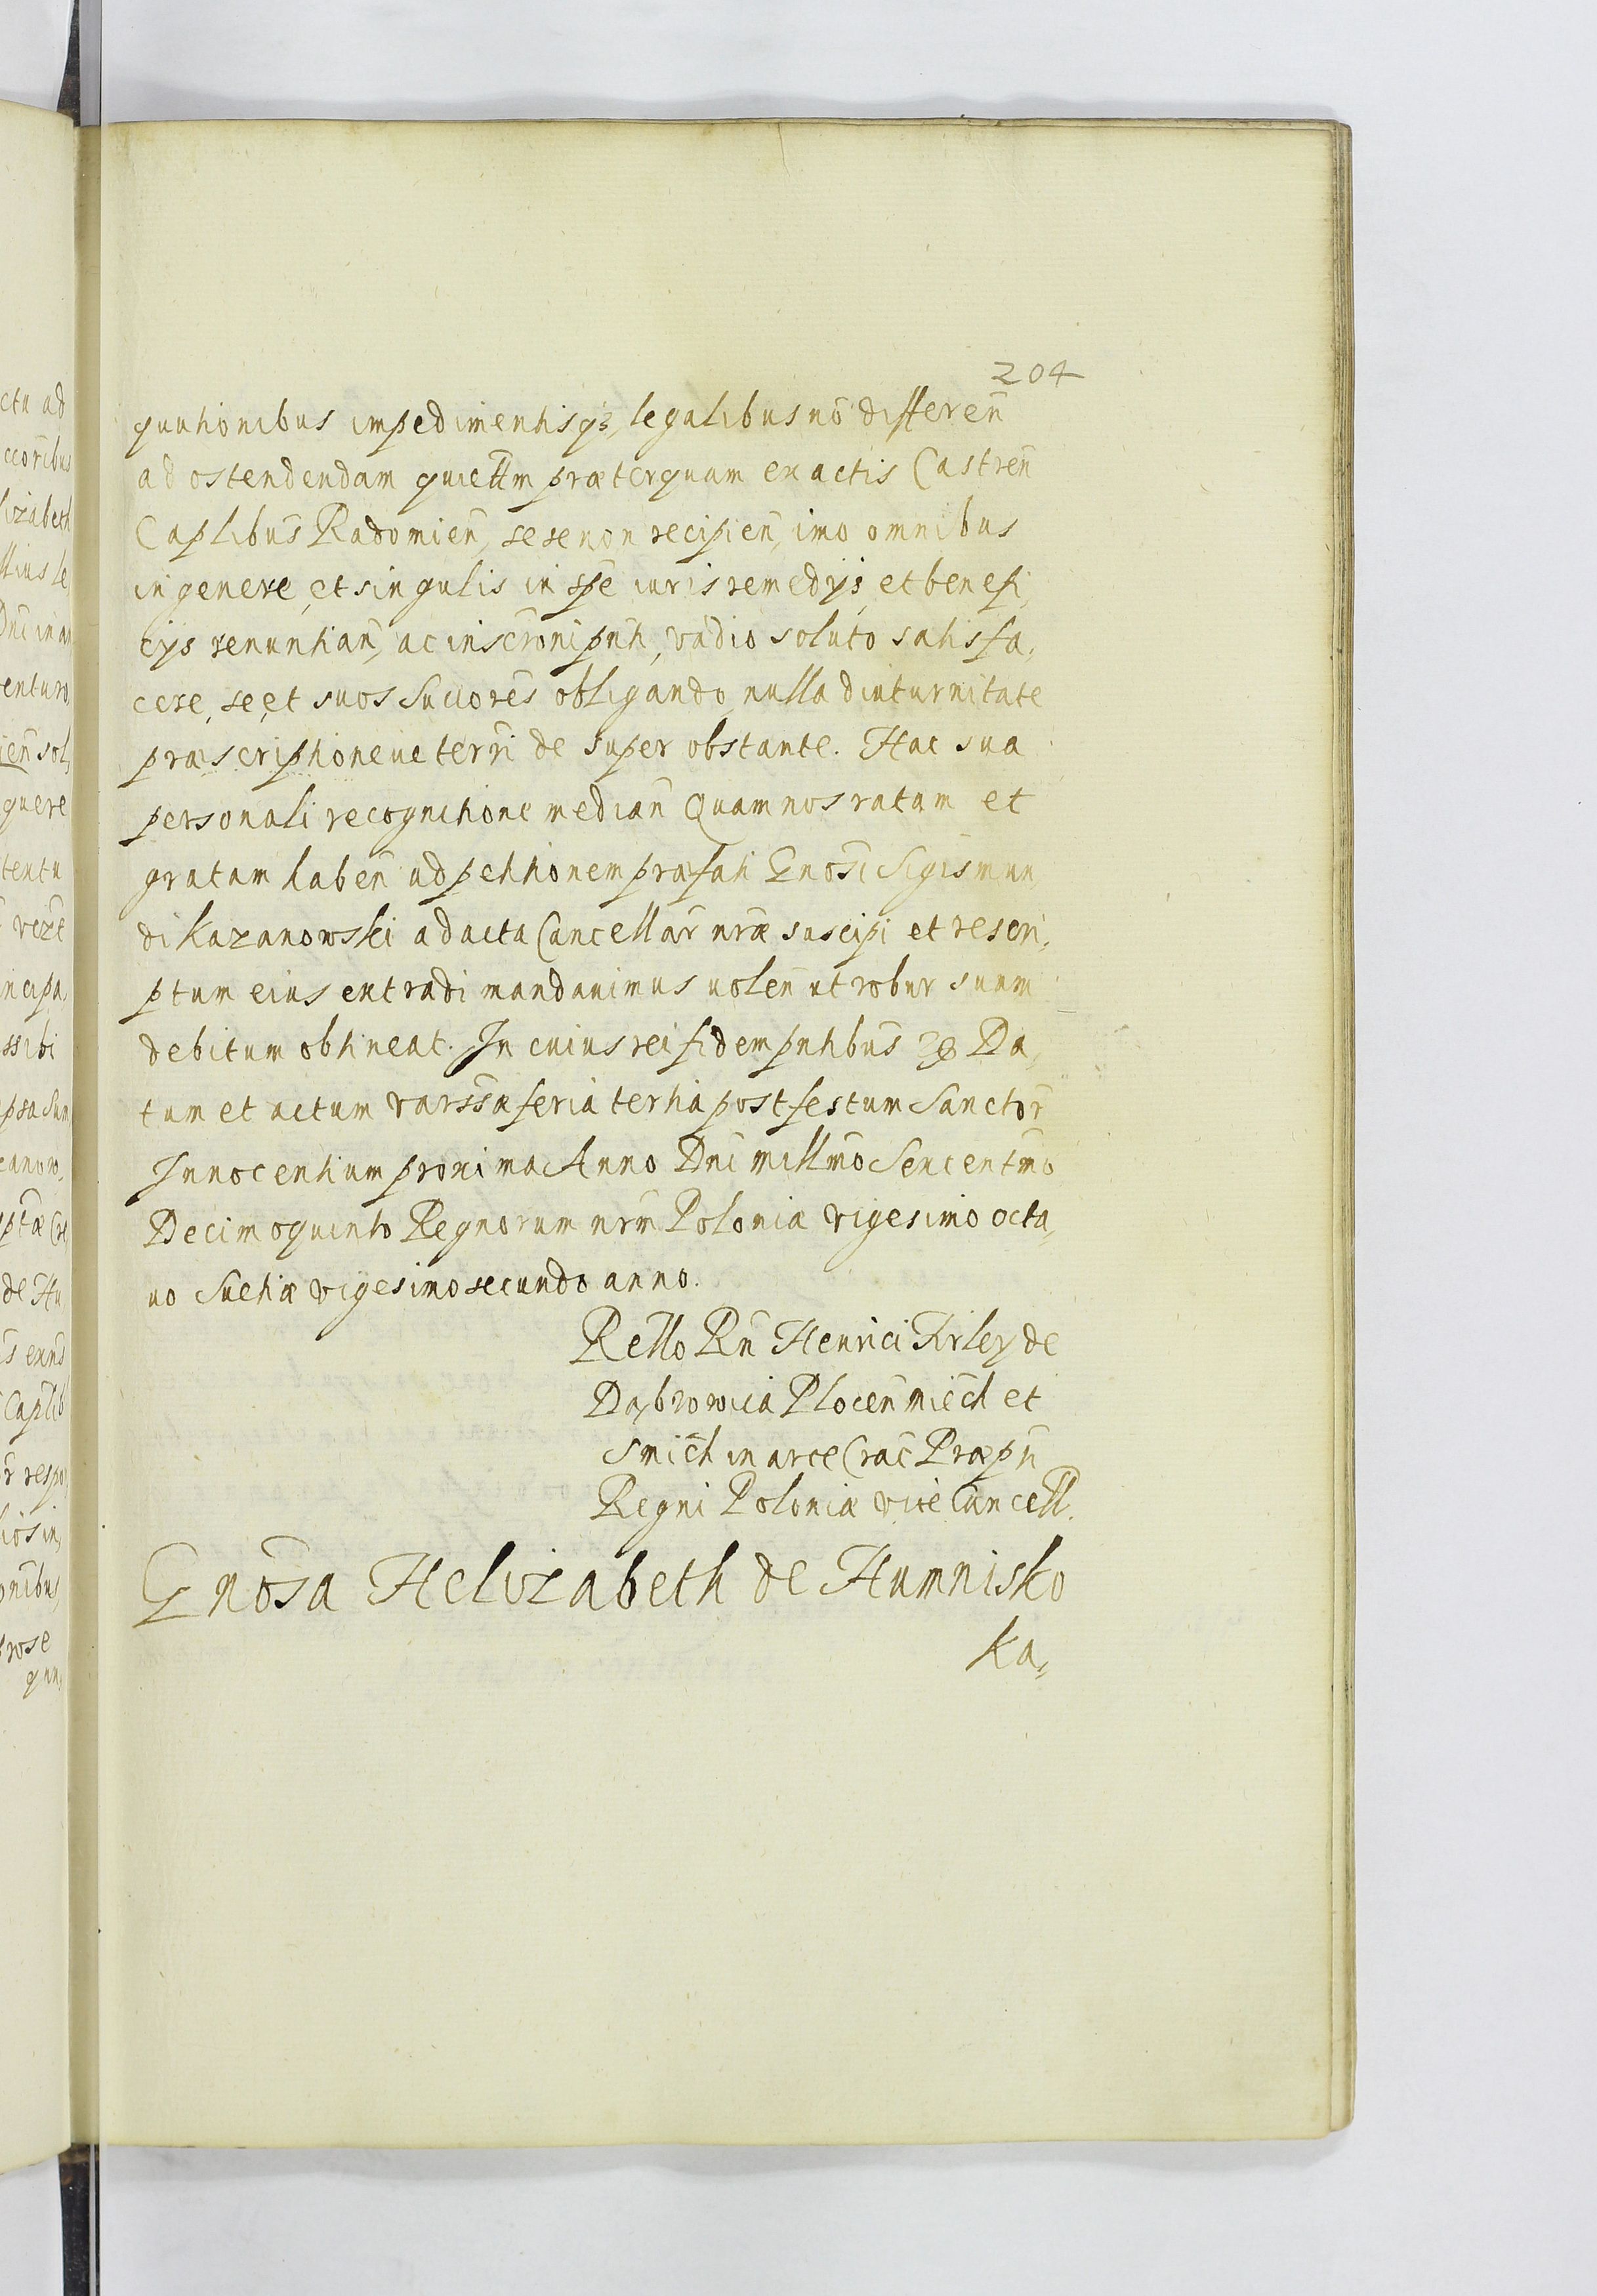 204
quutionibus impedimentisq3, legalibus nō differeñ
ad ostendendam quiettm̃ præterquam ex actis Castreñ
Caplibus̃ Radomieñ, sese non recipieñ, imo omnibus
in genere, et singulis in spē iuris remedÿs, et benefi,
cÿs renuntiañ, ac inscr̃oni pn̄ti, vadio soluto satisfa,
cere, se et suos Succores̃ obligando, nulla diuturnitate
præscriptioneue terrĩ de super obstante. Hac sua
personali recognitione mediañ Quam nos ratam et
gratam habeñ ad petitionem præfati Gnosĩ Sigismun,
di Kazanowski ad acta Cancellar̃ nr̃æ suscipi et rescri,
ptum eius extradi mandauimus uoleñ ut robur suum
debitum obtineat. In cuius rei fidem pn̄tibus̃ Da,
tum et actum varssæ̃ feria tertia post festum Sanctor̃
Innocentium proxima Anno Dnĩ millmõ Sexcentmõ
Decimoquinto Regnorum nrm̃ Poloniæ vigesimo octa,
uo Suetiæ vigesimo secundo anno.
Rello Rñ Henrici Firley de
Dąbrowica Ploceñ Miec̃h et
S Mic̃h in arce Crac̃ Præpñ
Regni Poloniæ viceCancell.
Gnos̃a Helizabeth de Humnisko
Ka,
ctu ad
ccor̃ibus
lizabeth
llius le
Dnĩ in an
enturo
ieñ sol,
quere
tentu
ver̃e
ncipa,
ssibi
psa Sum
zanow,
de Hu
Caplib̃
r̃ respo
onibus,
rose
quu,